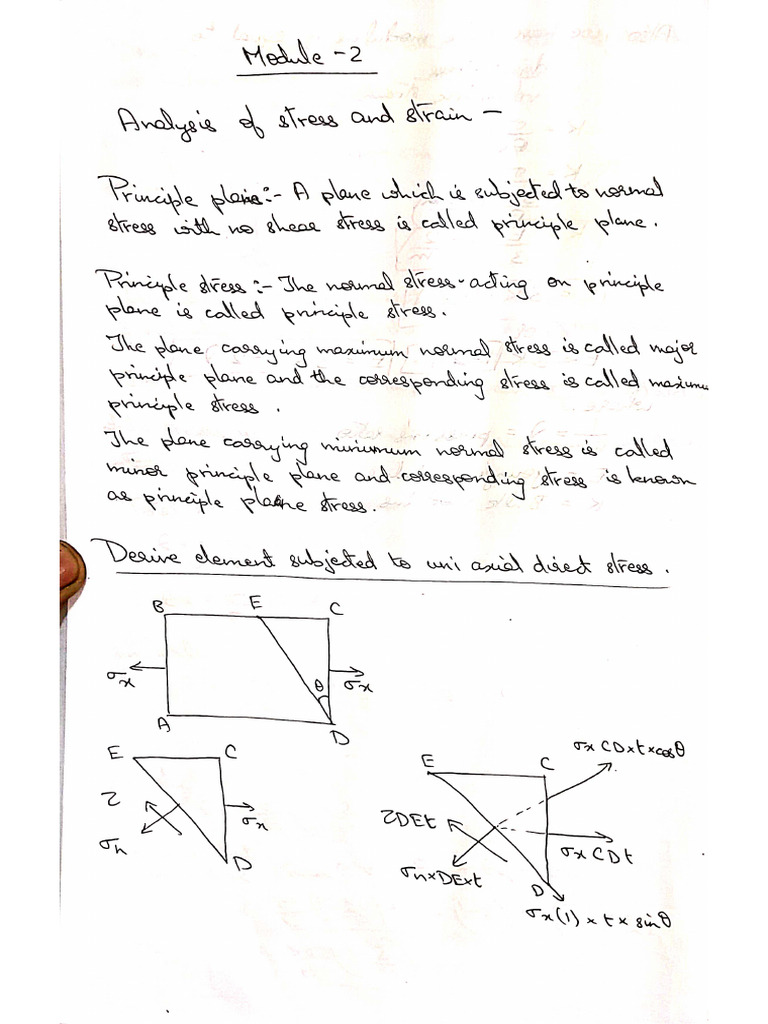 Module - 2
Analysis of stress and strain -
Principle plane:- A plane which is subjected to normal
stress with no shear stress is called principle plane.
Principle stress :- The normal stress acting on principle
plane is called principle stress.
The plane carrying maximum normal stress is called major
principle plane and the corresponding stress is called maximum
principle stress.
The plane carrying minimum normal stress is called
minor principle plane and corresponding stress is known
as principle plane stress.
Derive element subjected to uni axial direct stress.
B E C
σx θ σx
A D
E C
τ σx
σn
D
σx CD×t×cosθ
E C
τDEt
σx CDt
σn×DE×t
D
σx(1) × t × sinθ